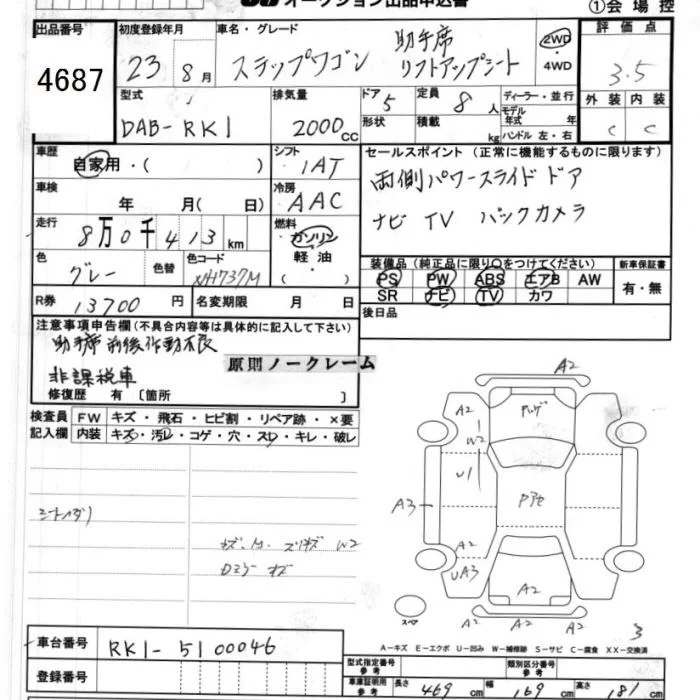 オークション出品申込書
①会場控
出品番号 初度登録年月 車名・グレード 評価点
4687 23 8月 ステップワゴン 助手席 リフトアップシート 2WD・4WD 3.5
型式 排気量 ドア 5 定員 8人 ディーラー・並行 外装 内装
DAB-RK1 2000cc 形状 積載 kg モデル年式 年式 ハンドル 左・右 C C
車歴 シフト セールスポイント (正常に機能するものに限ります)
自家用・( ) 1AT 両側パワースライドドア
車検 年 月( 日) 冷房 AAC ナビ TV バックカメラ
走行 8万0千413km 燃料 ガソリン 軽油 ・( )
装備品 (純正品に限り○をつけてください) 新車保証書
色 グレー 色替 色コード NH737M PS PW ABS エアB AW 有・無
SR ナビ TV カワ
R券 13700円 名変期限 月 日 後日品
注意事項申告欄(不具合内容等は具体的に記入して下さい)
助手席前後作動不良
原則ノークレーム
非課税車
修復歴 有 〔箇所 〕
検査員記入欄 FW キズ・飛石・ヒビ割・リペア跡・×要
内装 キズ・汚レ・コゲ・穴・スレ・キレ・破レ
A2
A2
W2
U1
A3
A2
UA3
A2
A2
A2
スペア
3
車台番号 RK1-5100046
A-キズ E-エクボ U-凹み W-補修跡 S-サビ C-腐食 XX-交換済
登録番号
型式指定番号 参考 類別区分番号 参考
車庫証明用 参考 長さ 469cm 幅 169cm 高さ 181cm